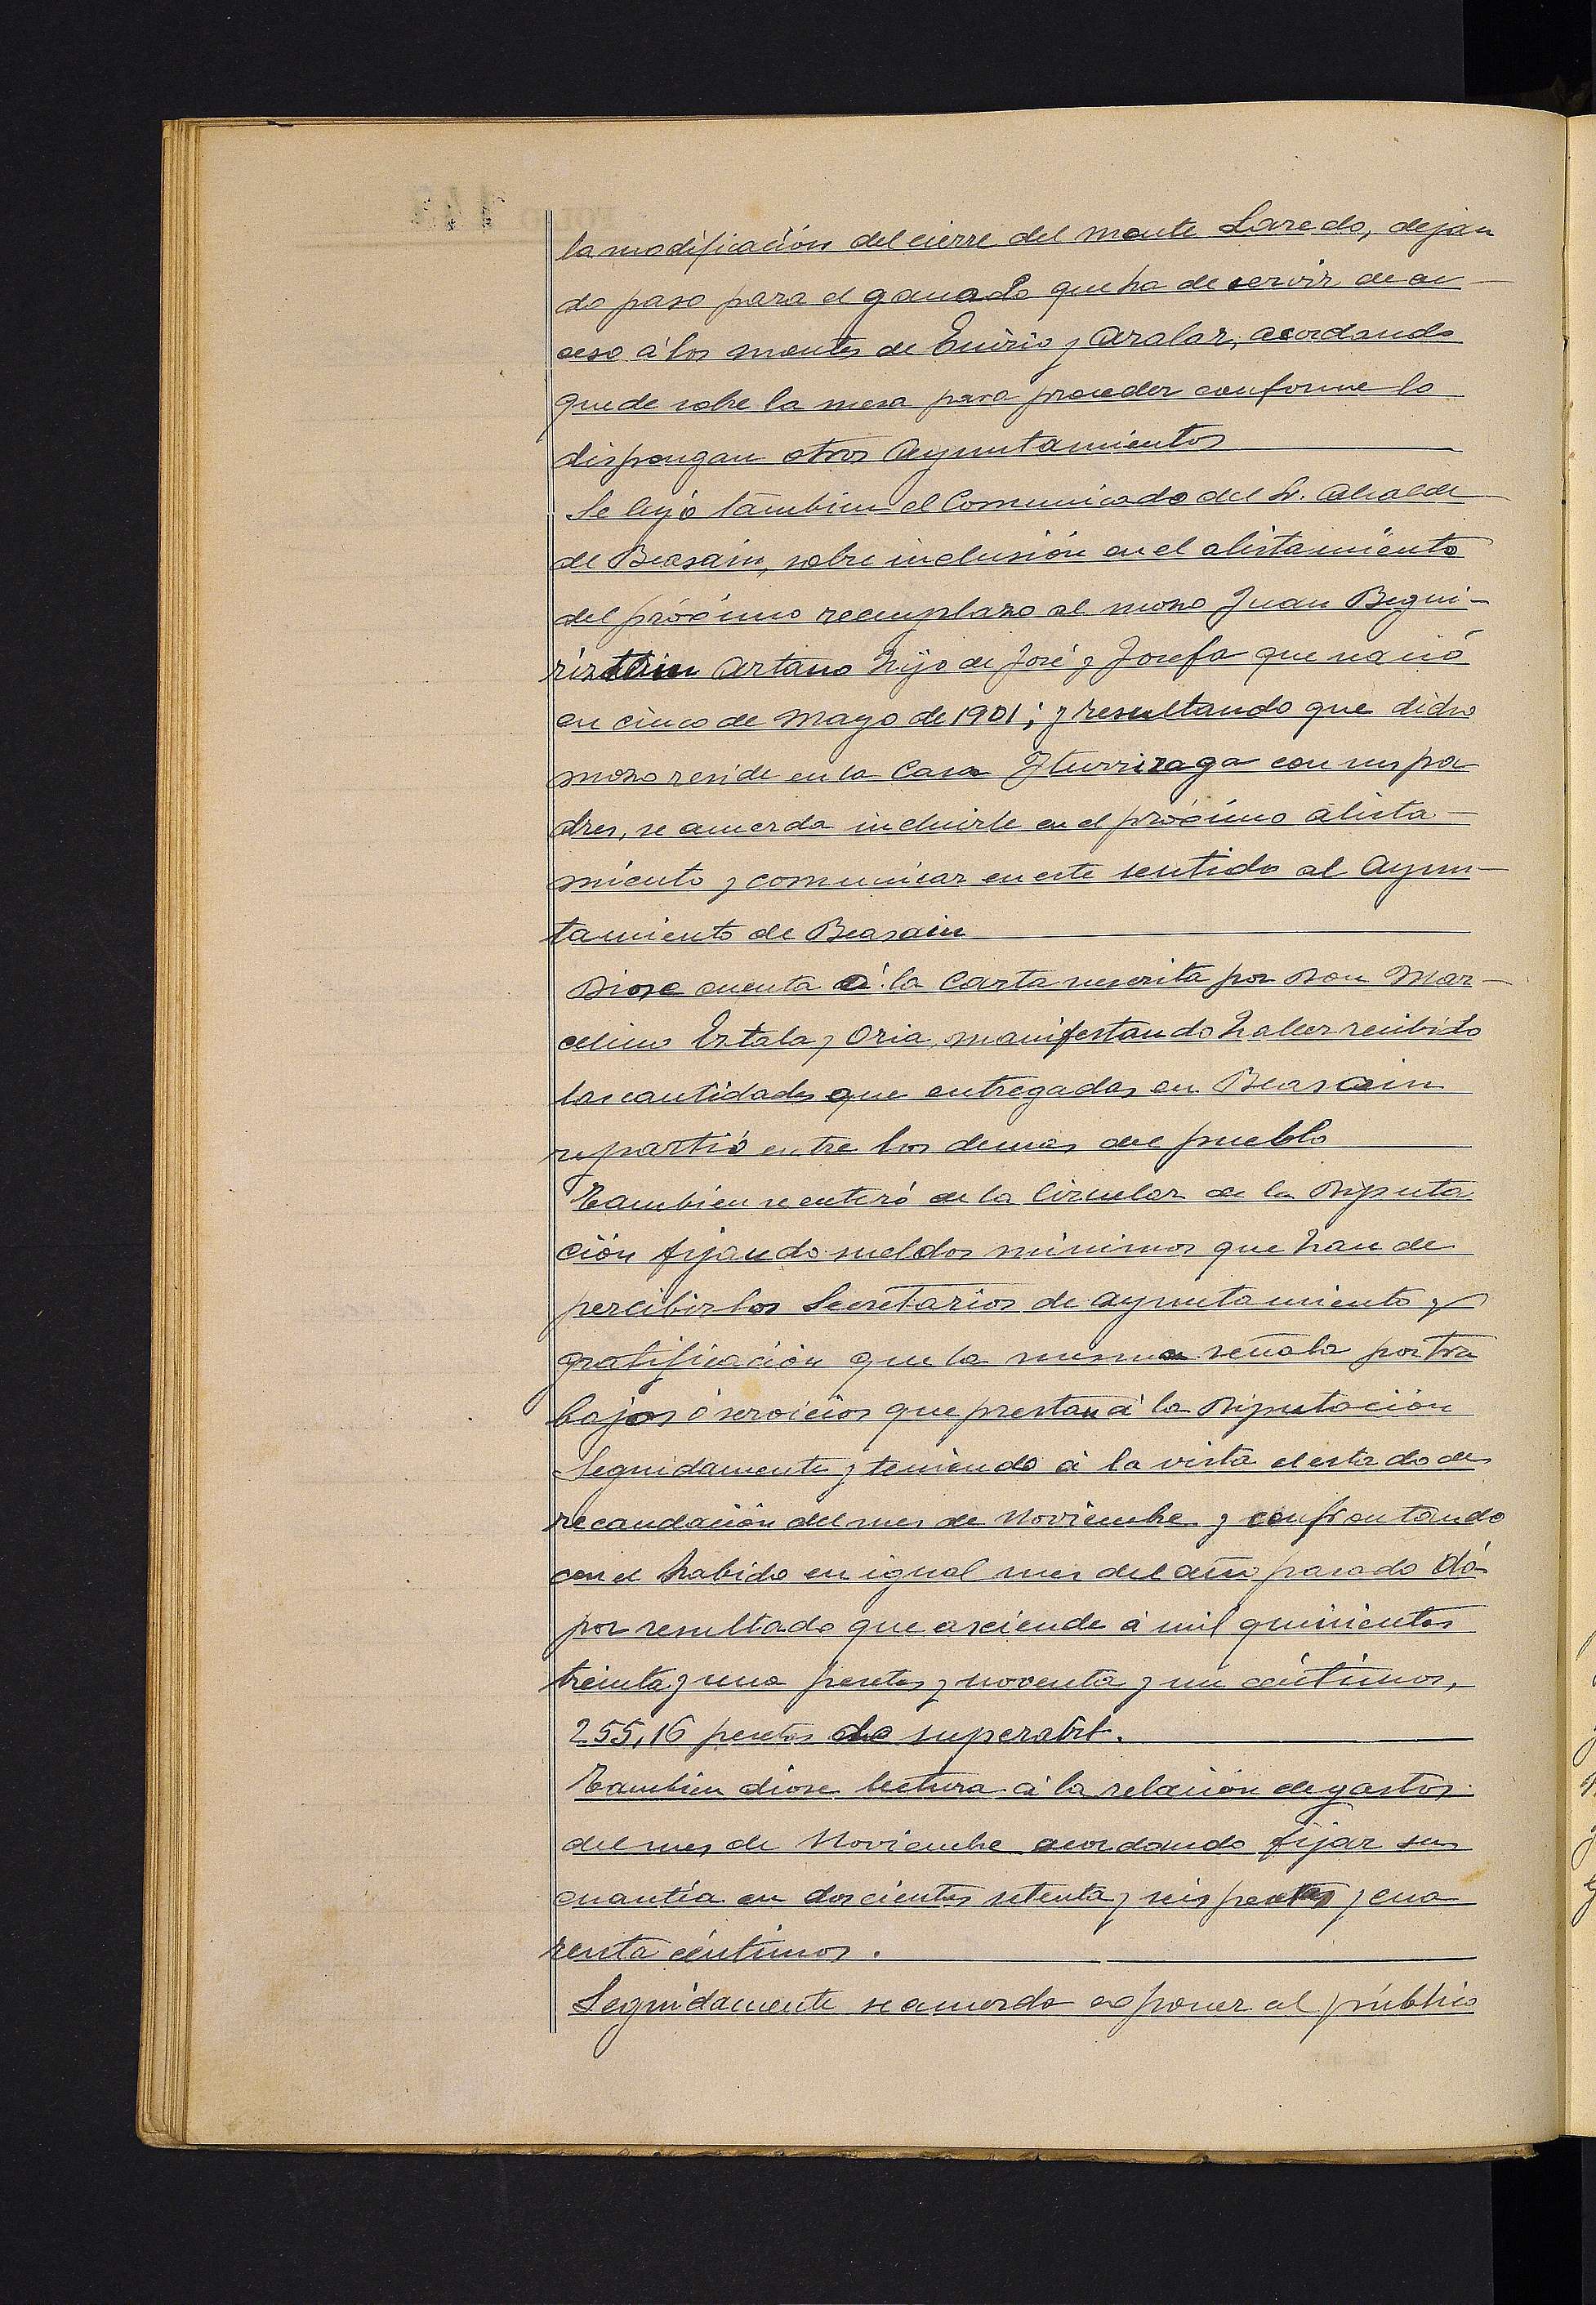 la modificación del cierre del monte Laredo, dejan
do paso para el ganado que ha de servir de ac-
ceso á los montes de Enirio y Aralar, acordando
quede sobre la mesa para proceder conforme lo
dispongan otros Ayuntamientos
Se leyó tambien el Comunicado del Sr. Alcalde
de Beasain, sobre inclusión en el alistamiento
del próximo reemplazo al mozo Juan Begui-
ristain Artano hijo de José y Josefa que nació
en cinco de Mayo de 1901; y resultando que dicho
mozo reside en la Casa Iturrizaga con sus pa
dres, se acuerda incluirle en el próximo alista-
miento y comunicar en este sentido al Ayun-
tamiento de Beasain
Diose cuenta á la Carta suscrita por Don Mar-
celino Oria, manifestando haber recibido
las cantidades que entregadas en Beasain
repartió entre los demas del pueblo
Tambien se enteró de la Circular de la Diputa
ción fijando sueldos minimos que han de
percibir los Secretarios de Ayuntamiento y
gratificación que la misma señala por tra
bajos ó servicios que prestan á la Diputación
Seguidamente y teniendo á la vista el estado de
recaudación del mes de Noviembre y confrontando
con el habido en igual mes del año pasado dá
por resultado que asciende á mil quinientos
treinta y una pesetas y noventa y un céntimos,
255,16 pesetas de superabit.
Tambien diose lectura á la relación de gastos
del mes de Noviembre acordando fijar sus
cuantía en doscientas setenta y seis pesetas y cua
renta céntimos.
Seguidamente se acuerda exponer al público